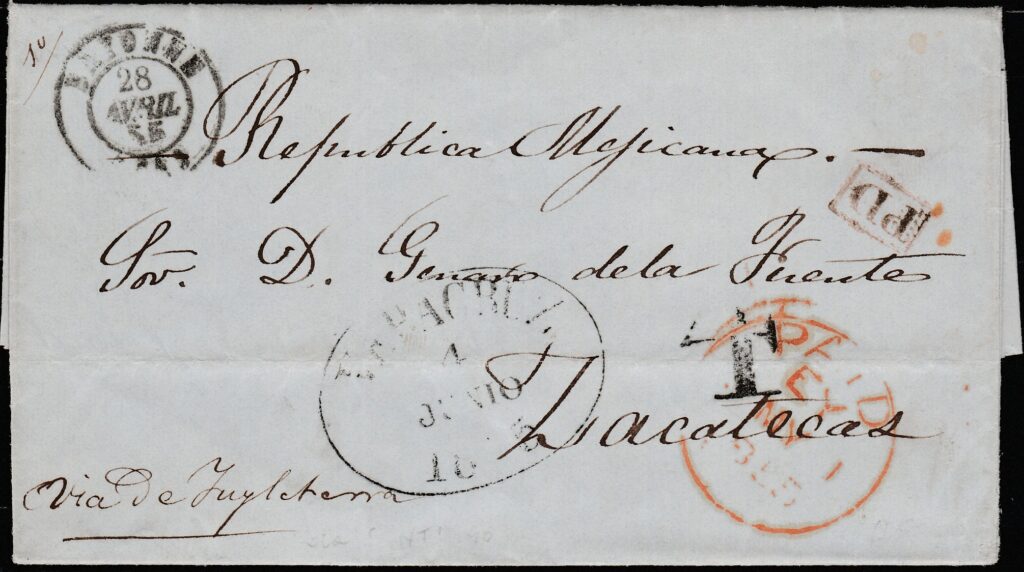 28
AVRIL
55
Republica Mejicana. —
PD
Sor. D. Genaro de la Fuente
VERACRUZ.
4
JUNIO
18
T
PAID
MY 1
1855
Zacatecas
Via de Inglaterra